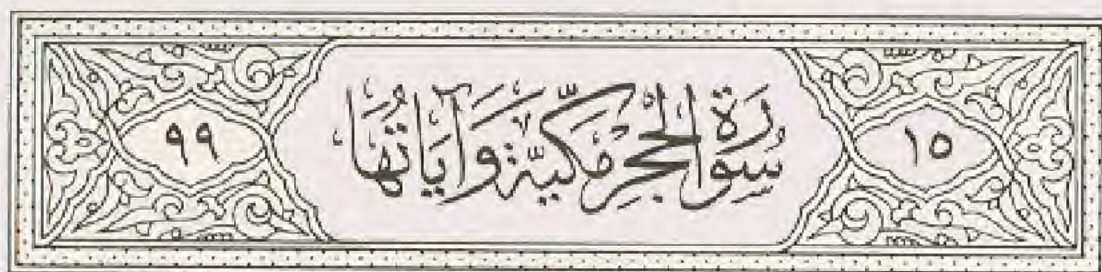 ١٥ سُورَةُ الحِجْرِ مَكِّيَّة وَآيَاتُهَا ٩٩